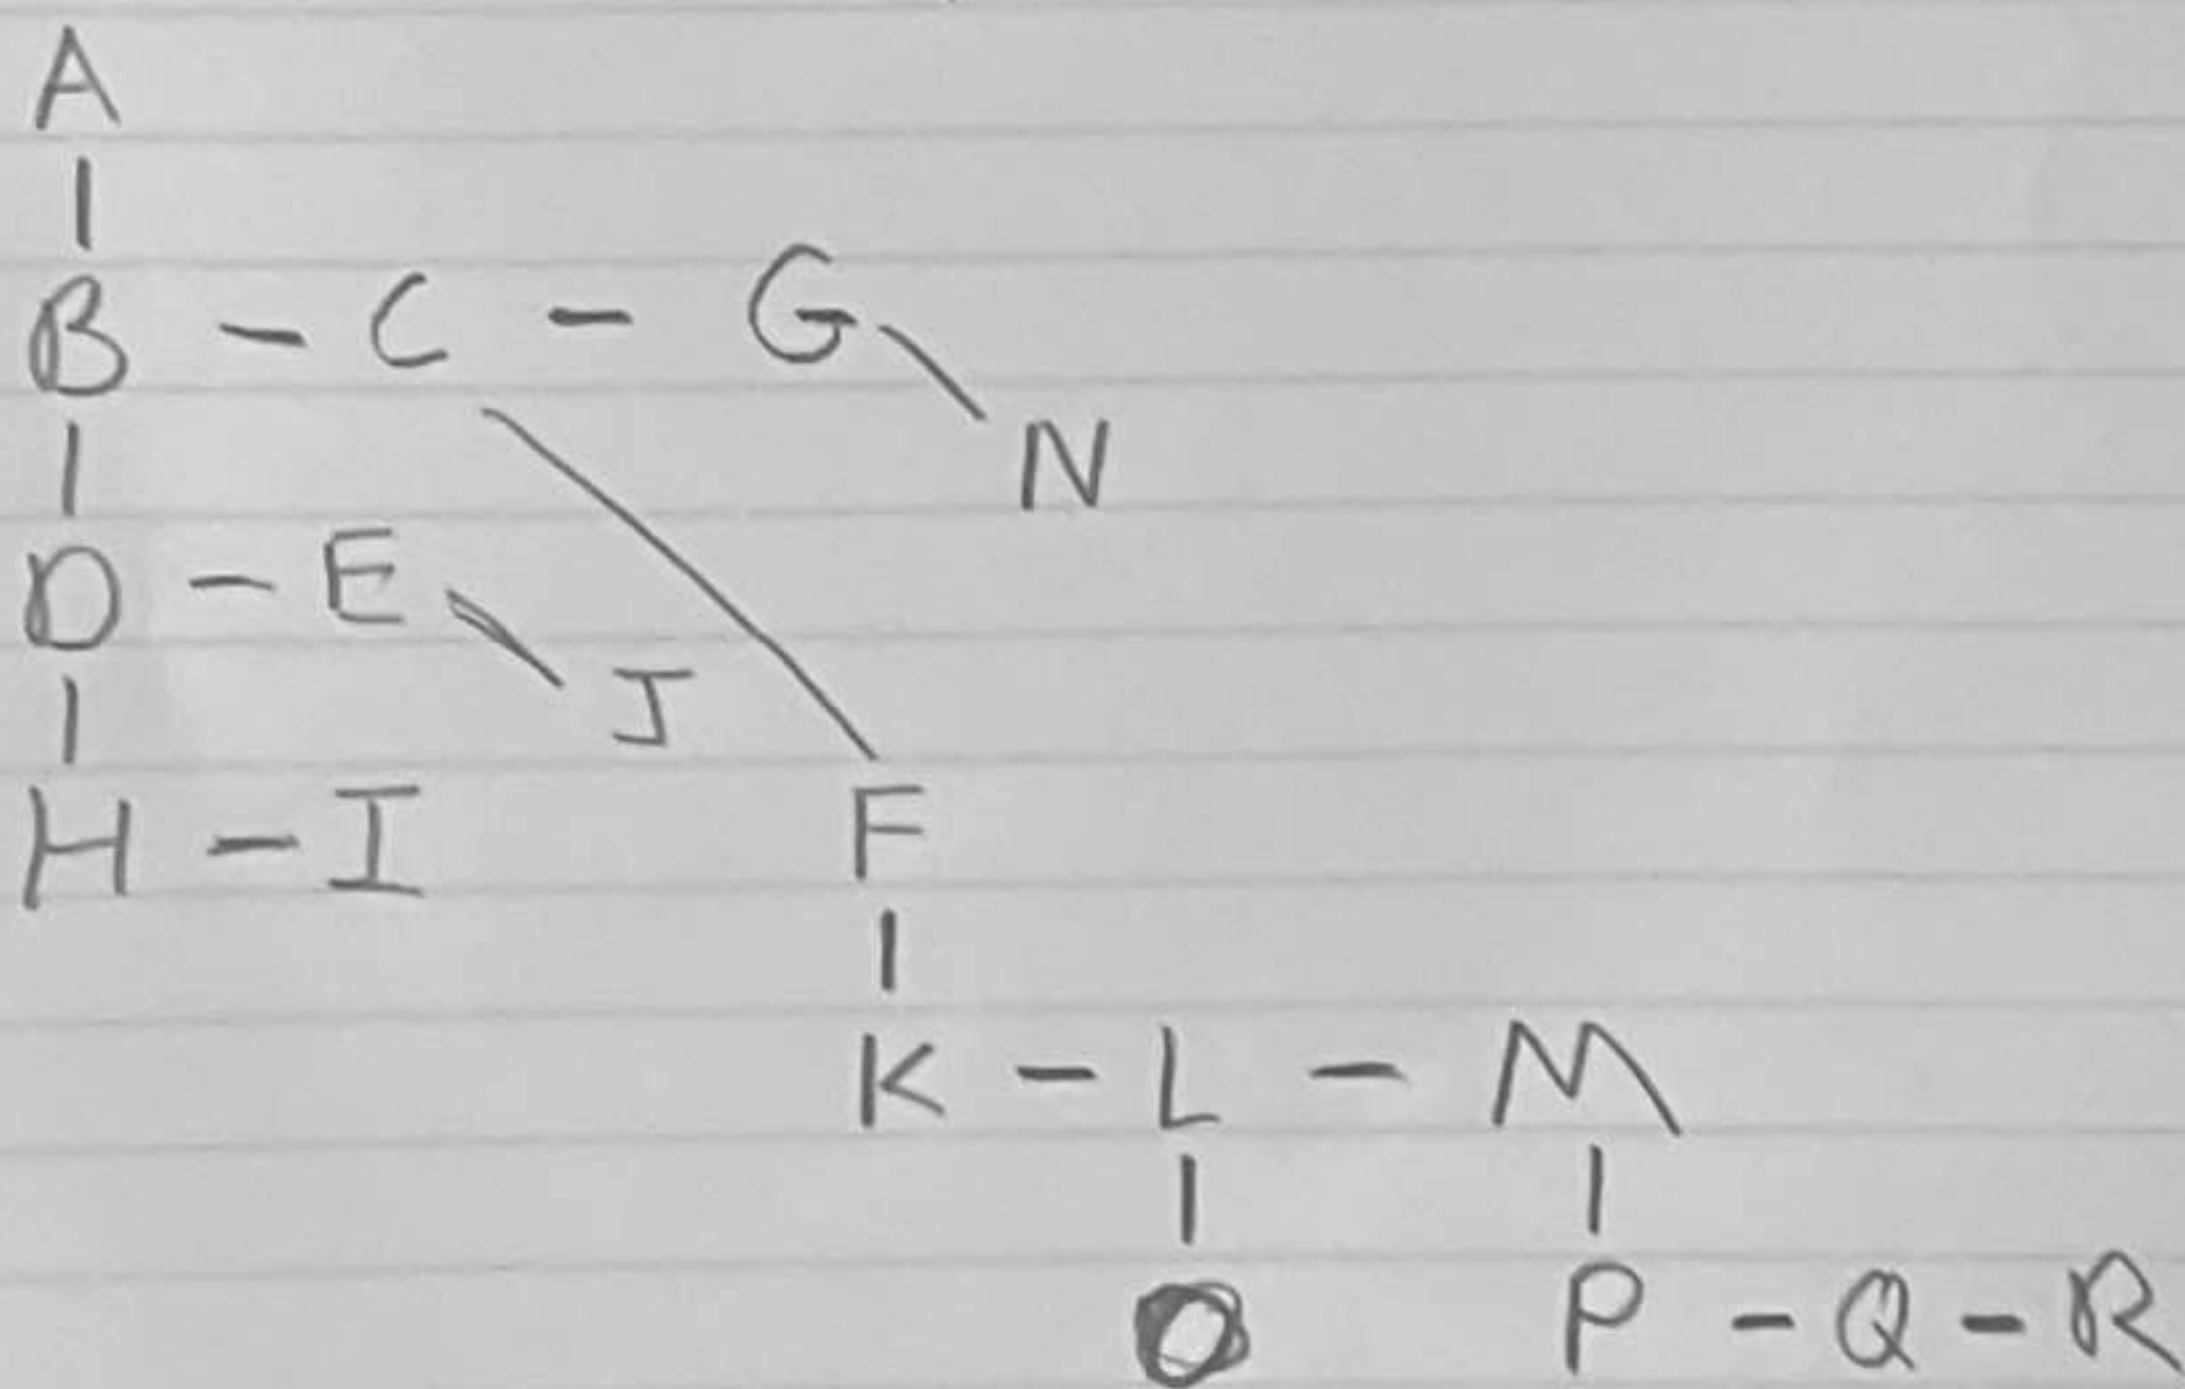 A
B - C - G
N
D - E
J
H - I F
K - L - M
O P - Q - R